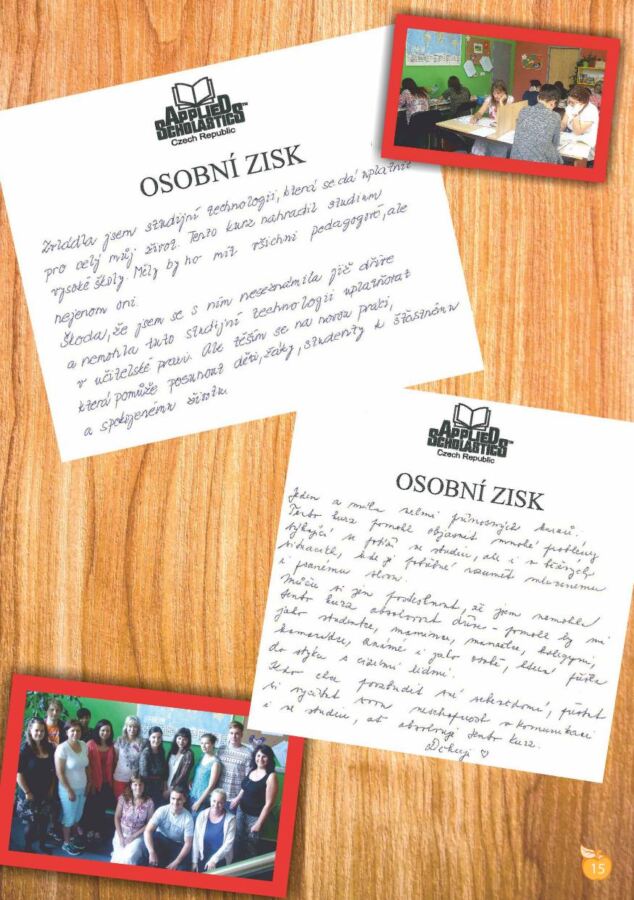 APPLIED
SCHOLASTICS™
Czech Republic
OSOBNÍ ZISK
Zvládla jsem studijní technologii, která se dá uplatnit
pro celý můj život. Tento kurz nahradil studium
vysoké školy. Měly by ho mít všichni pedagogové, ale
nejenom oni.
Škoda, že jsem se s ním neseznámila již dříve
a nemohla tuto studijní technologii uplatňovat
v učitelské praxi. Ale těším se na novou práci,
která pomůže posunout děti, žáky, studenty k šťastnému
a spokojenému životu.
APPLIED
SCHOLASTICS™
Czech Republic
OSOBNÍ ZISK
Jeden z mála velmi přínosných kurzů.
Tento kurz pomohl objasnit mnohé problémy
týkající se potíží ve studiu, ale i v běžných
situacích, kde je potřebné rozumět mluvenému
i psanému slovu.
Můžu si jen posteslnout, že jsem nemohla
tento kurz absolvovat dříve - pomohl by mi
jako studentce, mamince, manželce, kolegyni,
kamarádce, známé i jako osobě, která přišla
do styku s cizími lidmi.
Kdo chce pozvednout své sebevědomí, přestat
si vyčítat svou neschopnost v komunikaci
i ve studiu, ať absolvuje tento kurz.
Děkuji ♡
15